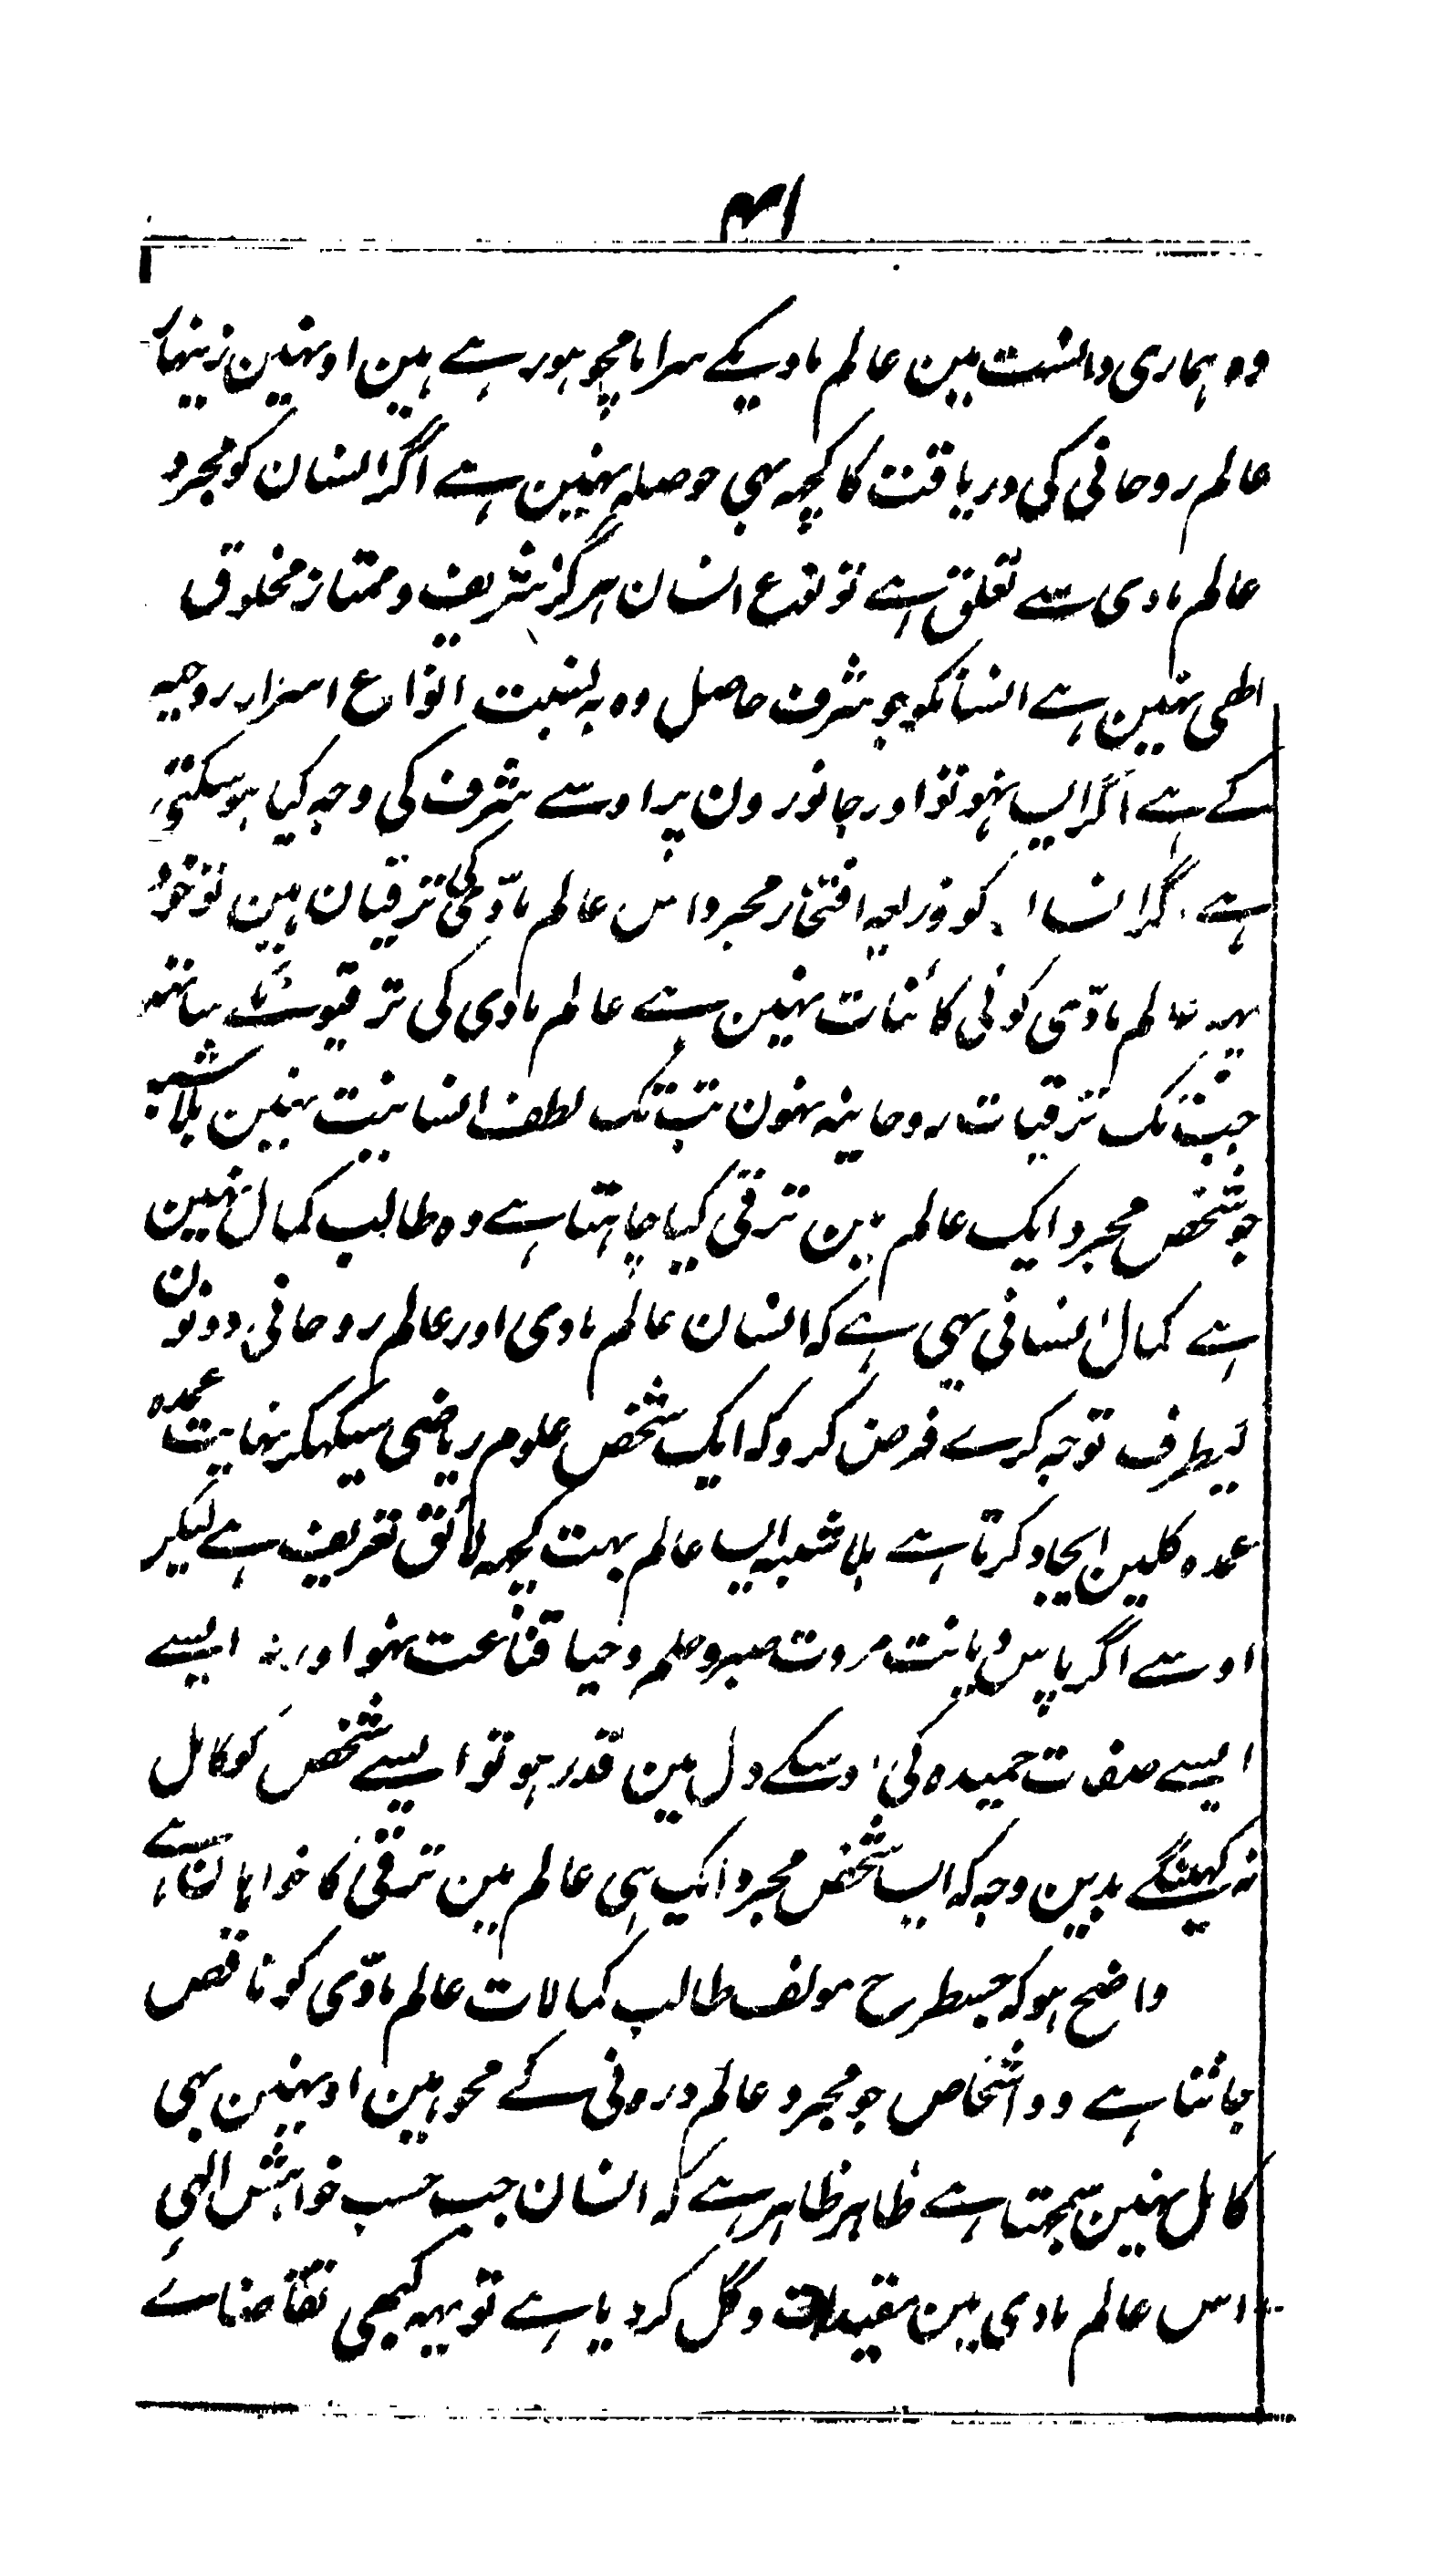 ۴۱
وہ ہماری دانست مین عالم مادیکے سراپا محو ہو رہے ہین اونہین زینہار
عالم روحانی کی دریافت کا کچھہ بہی حوصلہ نہین ہے اگر انسان کو مجرد
عالم مادی سے تعلق ہے تو نوع انسان ہرگز شریف و ممتاز مخلوق
الٰہی نہین ہے انسانکو جو شرف حاصل وہ بہ نسبت انواع اسرار روحیہ
کے ہے اگر ایسا نہو تو اور جانورون پر اوسے شرف کی وجہ کیا ہو سکتی
ہے اگر انسان کو ذریعہ افتخار مجرد اس عالم مادّی کی ترقیان ہین تو خود
یہہ عالم مادّی کوئی کائنات نہین ہے عالم مادی کی ترقیونکے ساتھہ
جب تک ترقیات روحانیہ نہون تب تک لطف انسانیت نہین بلاشبہہ
جو شخص مجرد ایک عالم مین ترقی کیا چاہتا ہے وہ طالب کمال نہین
ہے کمال انسانی یہی ہے کہ انسان عالم مادی اور عالم روحانی دونون
کیطرف توجہ کرے فرض کرو کہ ایک شخص علوم ریاضی سیکھکر نہایت عمدہ
عمدہ کلین ایجاد کرتا ہے بلا شبہ ایسا عالم بہت کچھہ لائق تعریف ہے لیکن
اوسے اگر پاس دیانت مروت صبر و حلم و حیا قناعت نہو اور نہ ایسے
ایسے صفات حمیدہ کی اوسکے دل مین قدر ہو تو ایسے شخص کو کامل
نہ کہینگے بدین وجہ کہ ایسا شخص مجرد ایک ہی عالم مین ترقی کا خواہان ہے
واضح ہو کہ جسطرح مولف طالب کمالات عالم مادّی کو ناقص
جانتا ہے وو اشخاص جو مجرد عالم درونی کے محو ہین اونہین بہی
کامل نہین سمجھتا ہے ظاہر ظاہر ہے کہ انسان جب حسب خواہش الٰہی
اس عالم مادی مین مقید و گل کر دیا ہے تو یہہ کبھی تقاضائے